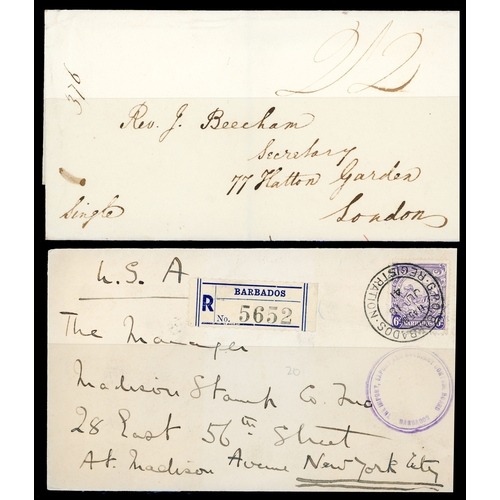 2/2
376
Rev. J. Beecham
Secretary
77 Hatton Garden
London
Single
U.S.A
BARBADOS
R No. 5652
The Manager
Madison Stamp Co. Inc
28 East 56th Street
At. Madison Avenue New York City
G.P.O. BARBADOS·
REGISTRATION·
BARBADOS
20